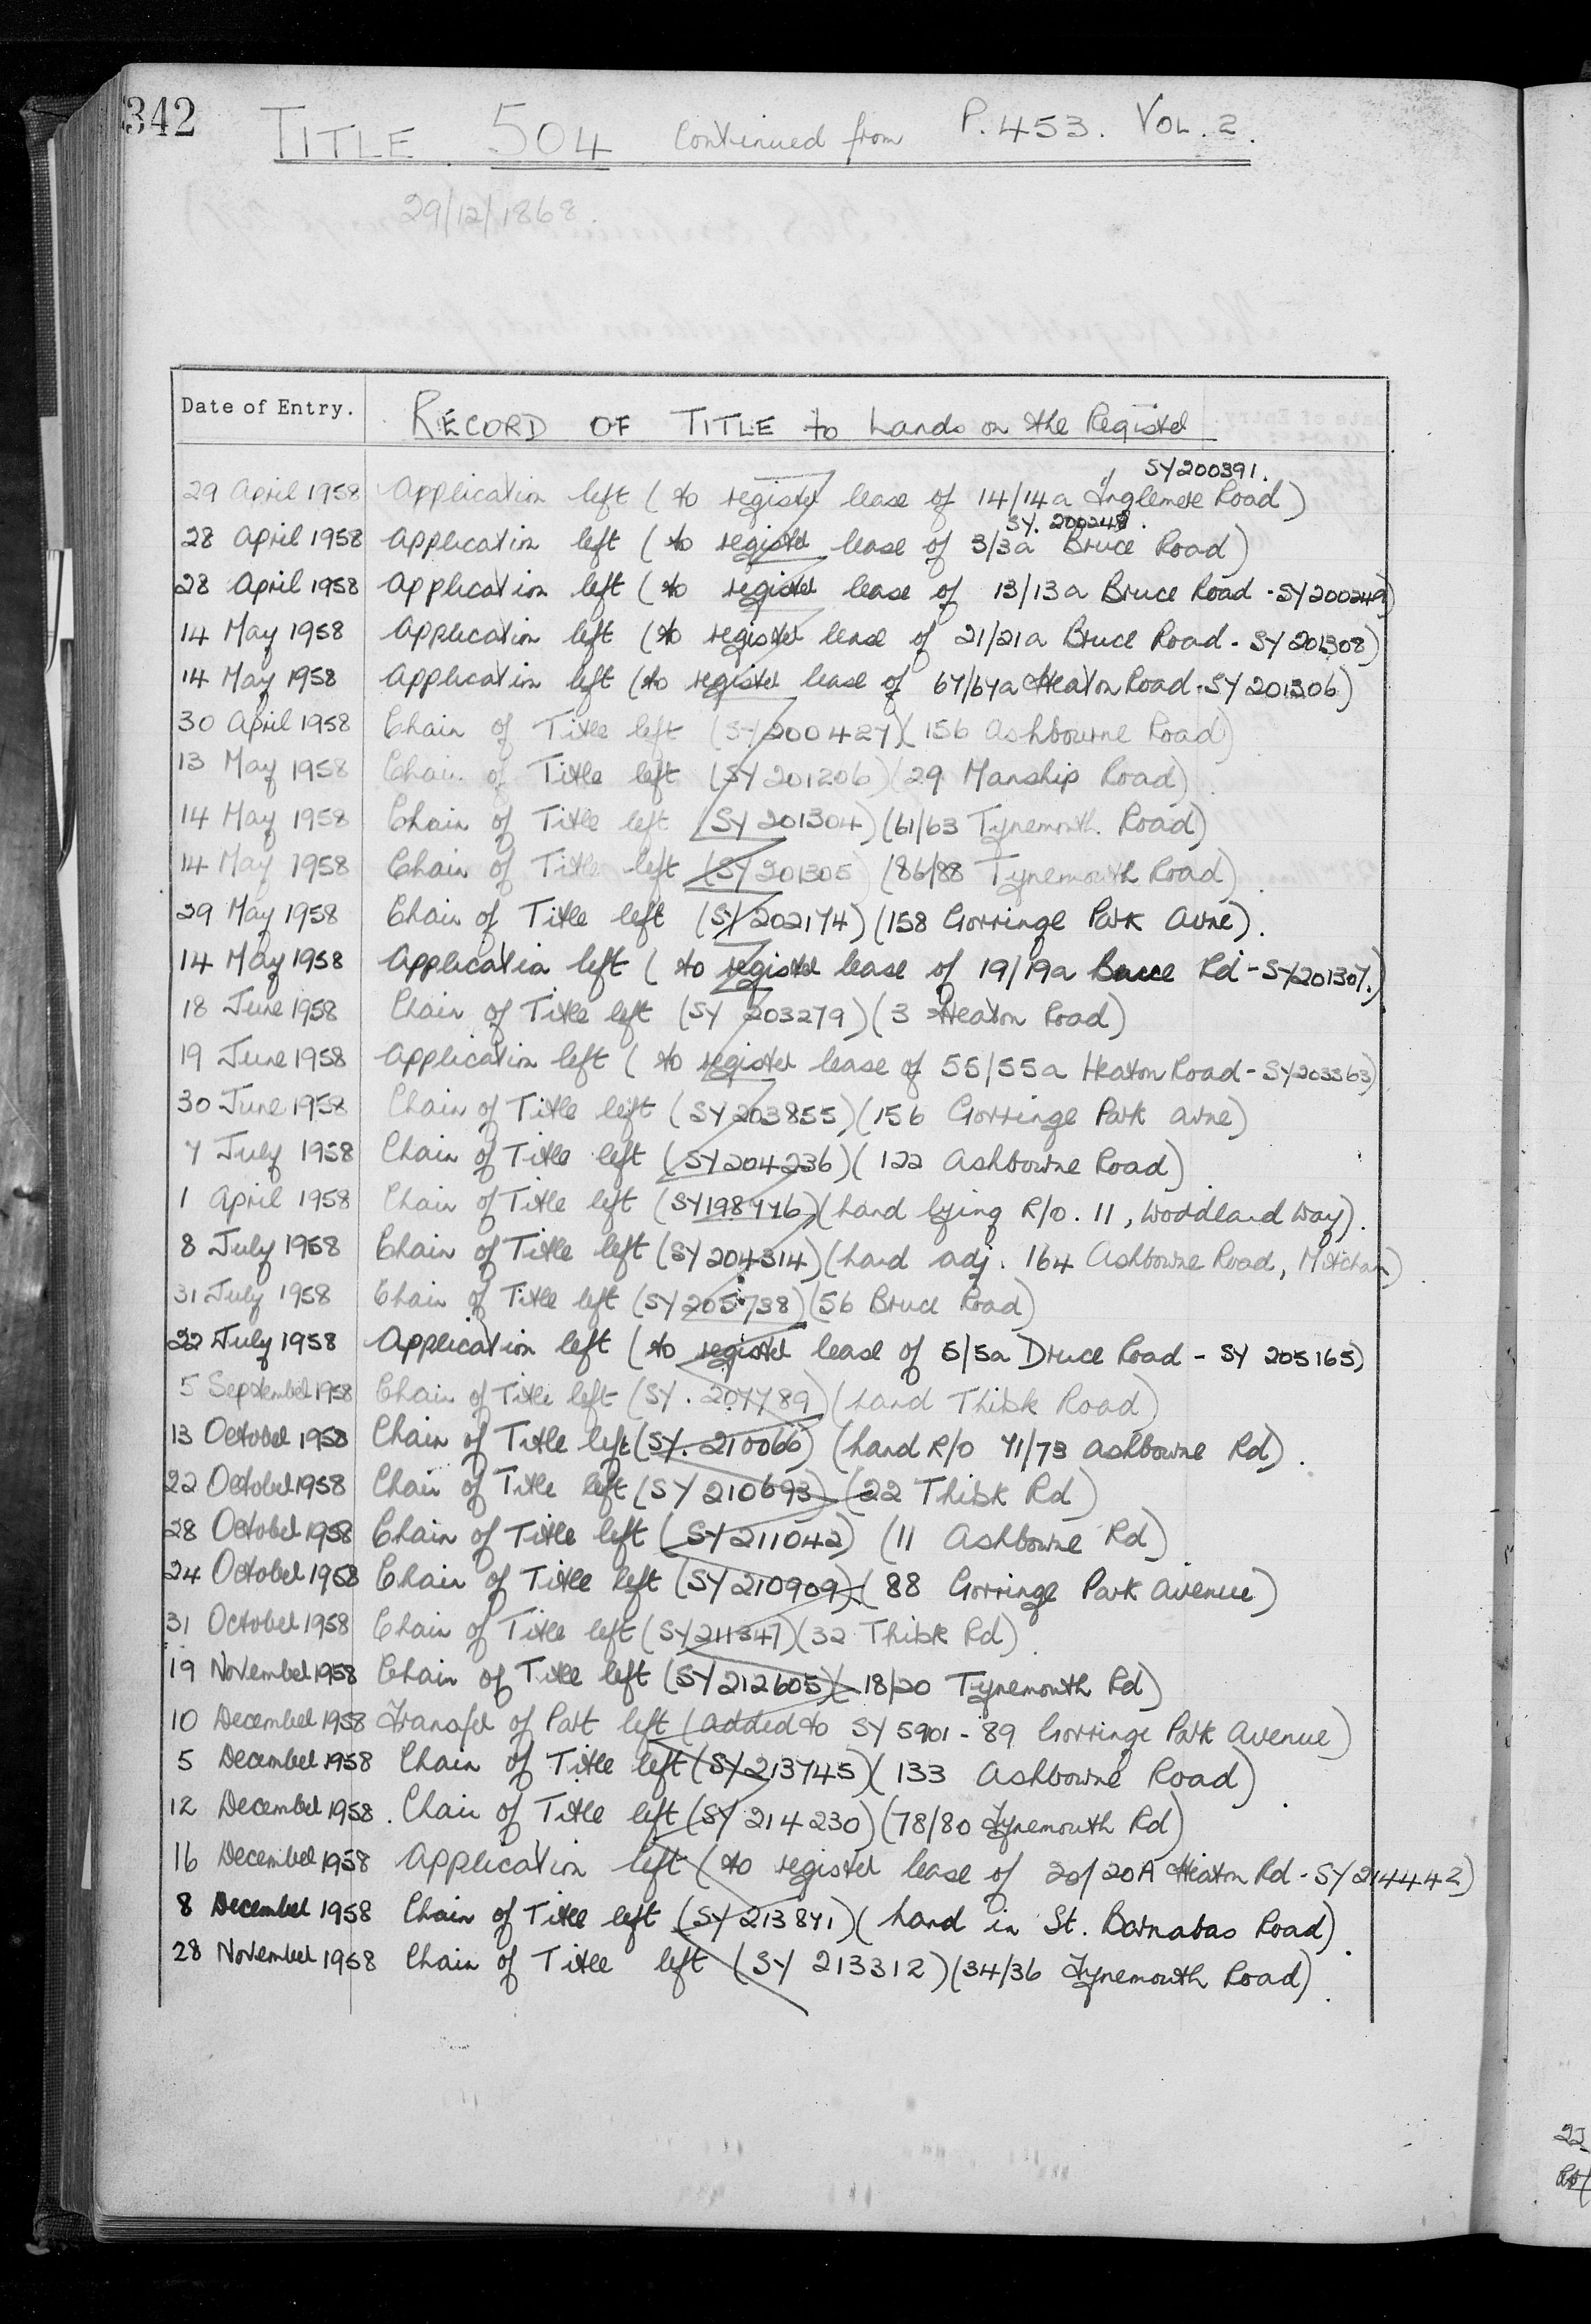 342
TITLE 504 Continued from P.453. VOL. 2.
29/12/1868.
Date of Entry.
RECORD OF TITLE to Lands on the Register
SY200391.
29 April 1958 Application left (to register lease of 14/14a Inglemere Road)
SY. 200248.
28 April 1958 Application left (to register lease of 3/3a Bruce Road)
28 April 1958 Application left (to register lease of 13/13a Bruce Road - SY200249)
14 May 1958 Application left (to register lease of 21/21a Bruce Road - SY 201308)
14 May 1958 Application left (to register lease of 67/67a Heaton Road - SY 201306)
30 April 1958 Chain of Title left (SY 200427)(156 Ashbourne Road)
13 May 1958 Chain of Title left (SY 201206)(29 Manship Road)
14 May 1958 Chain of Title left (SY 201304)(61/63 Tynemouth Road)
14 May 1958 Chain of Title left (SY 201305)(86/88 Tynemouth Road)
29 May 1958 Chain of Title left (SY 202174)(158 Gorringe Park Avne).
14 May 1958 Application left (to register lease of 19/19a Bruce Rd - SY201307.)
18 June 1958 Chain of Title left (SY 203279)(3 Heaton Road)
19 June 1958 Application left (to register lease of 55/55a Heaton Road - SY203363)
30 June 1958 Chain of Title left (SY 203855)(156 Gorringe Park Avne)
7 July 1958 Chain of Title left (SY204236)(122 Ashbourne Road)
1 April 1958 Chain of Title left (SY198776)(Land lying R/O. 11, Woodland Way).
8 July 1958 Chain of Title left (SY204314)(Land adj. 164 Ashbourne Road, Mitcham)
31 July 1958 Chain of Title left (SY205738)(56 Bruce Road)
22 July 1958 Application left (to register lease of 5/5a Druce Road - SY 205165)
5 September 1958 Chain of Title left (SY. 207789)(Land Thirsk Road)
13 October 1958 Chain of Title left (SY. 210066)(Land R/O 71/73 Ashbourne Rd).
22 October 1958 Chain of Title left (SY 210693)(22 Thirsk Rd)
28 October 1958 Chain of Title left (SY 211042)(11 Ashbourne Rd).
24 October 1958 Chain of Title left (SY 210909)(88 Gorringe Park Avenue)
31 October 1958 Chain of Title left (SY211347)(32 Thirsk Rd).
19 November 1958 Chain of Title left (SY212605)(18/20 Tynemouth Rd)
10 December 1958 Transfer of Part left (added to SY 5901 - 89 Gorringe Park Avenue)
5 December 1958 Chain of Title left (SY213745)(133 Ashbourne Road).
12 December 1958. Chain of Title left (SY 214230)(78/80 Tynemouth Rd)
16 December 1958 Application left (to register lease of 20/20A Heaton Rd - SY214442)
8 December 1958 Chain of Title left (SY 213871)(Land in St. Barnabas Road).
28 November 1958 Chain of Title left (SY 213312)(34/36 Tynemouth Road).